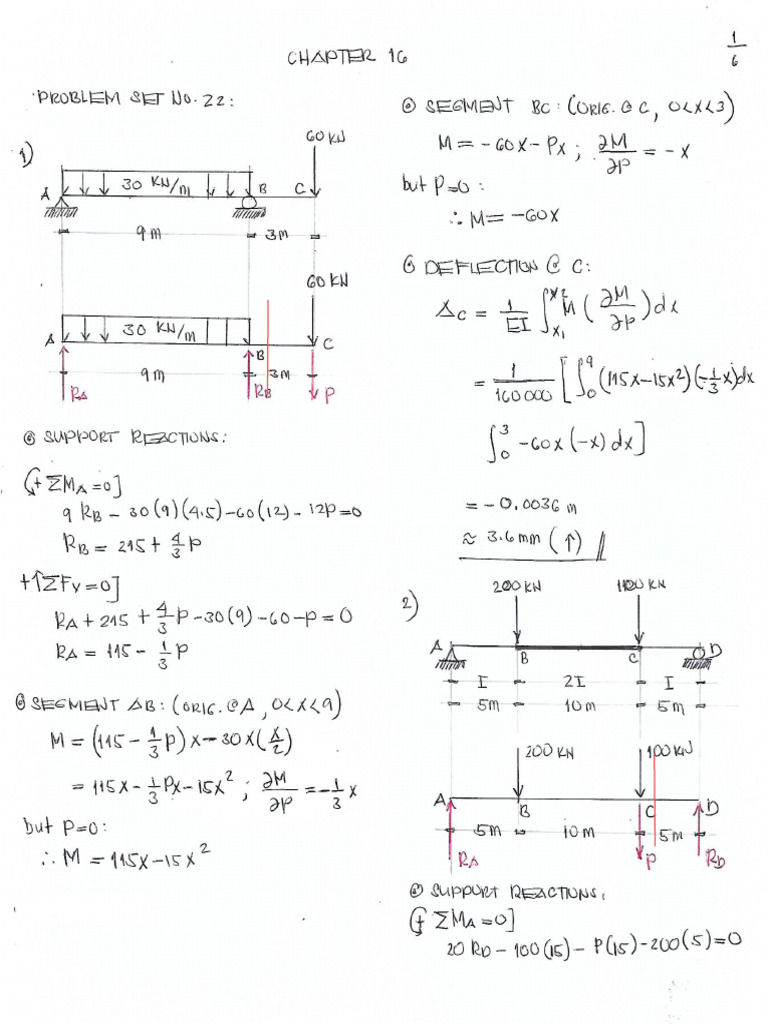 CHAPTER 16
1/6
PROBLEM SET NO. 22:
1)
60 KN
A 30 KN/m B C
9m 3m
60 KN
A 30 KN/m B C
9m 3m
RA RB P
⊚ SUPPORT REACTIONS:
(+ ΣMA=0]
9 RB - 30(9)(4.5) - 60(12) - 12P=0
RB = 215 + 4/3 P
+↑ΣFV=0]
RA + 215 + 4/3 P - 30(9) - 60 - P = 0
RA = 115 - 1/3 P
⊚ SEGMENT AB: (ORIG. @A, 0<X<9)
M = (115 - 1/3 P) X - 30X(X/2)
= 115X - 1/3 PX - 15X² ; ∂M/∂P = -1/3 X
but P=0:
∴ M = 115X - 15X²
⊚ SEGMENT BC: (ORIG. @ C, 0<X<3)
M = -60X - PX ; ∂M/∂P = -X
but P=0:
∴ M = -60X
⊚ DEFLECTION @ C:
ΔC = 1/EI ∫X1 X2 M (∂M/∂P) dX
= 1/160000 [∫0 9 (115X-15X²)(-1/3 X)dX
∫0 3 -60X (-X) dX]
= -0.0036 m
≈ 3.6mm (↑) //
2)
200 KN 100 KN
A B C D
I 2I I
5m 10m 5m
200 KN 100 KN
A B C D
5m 10m 5m
RA P RD
⊚ SUPPORT REACTIONS:
(+ ΣMA=0]
20 RD - 100(15) - P(15) - 200(5) = 0